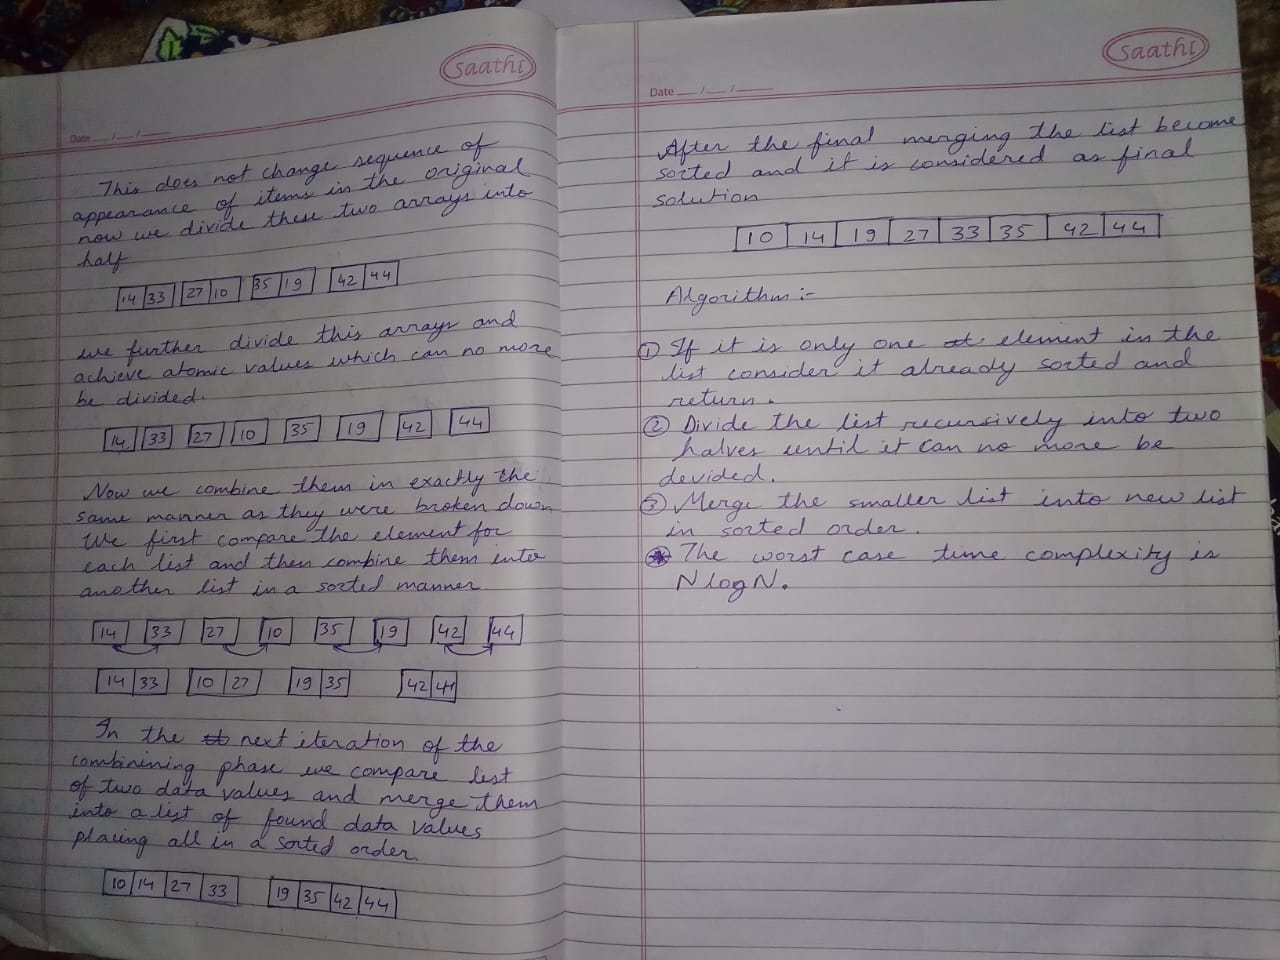 saathi
Date __/__/____
This does not change sequence of
appearance of items in the original
now we divide these two arrays into
half
14 33 27 10 35 19 42 44
we further divide this arrays and
achieve atomic values which can no more
be divided.
14 33 27 10 35 19 42 44
Now we combine them in exactly the
same manner as they were broken down
We first compare the element for
each list and then combine them into
another list in a sorted manner
14 33 27 10 35 19 42 44
14 33 10 27 19 35 42 44
In the next iteration of the
combinining phase we compare list
of two data values and merge them
into a list of found data values
placing all in a sorted order.
10 14 27 33 19 35 42 44
saathi
Date __/__/____
After the final merging the list become
sorted and it is considered as final
solution
10 14 19 27 33 35 42 44
Algorithm :-
① If it is only one element in the
list consider it already sorted and
return.
② Divide the list recursively into two
halves until it can no more be
devided.
③ Merge the smaller list into new list
in sorted order.
* The worst case time complexity is
N log N.